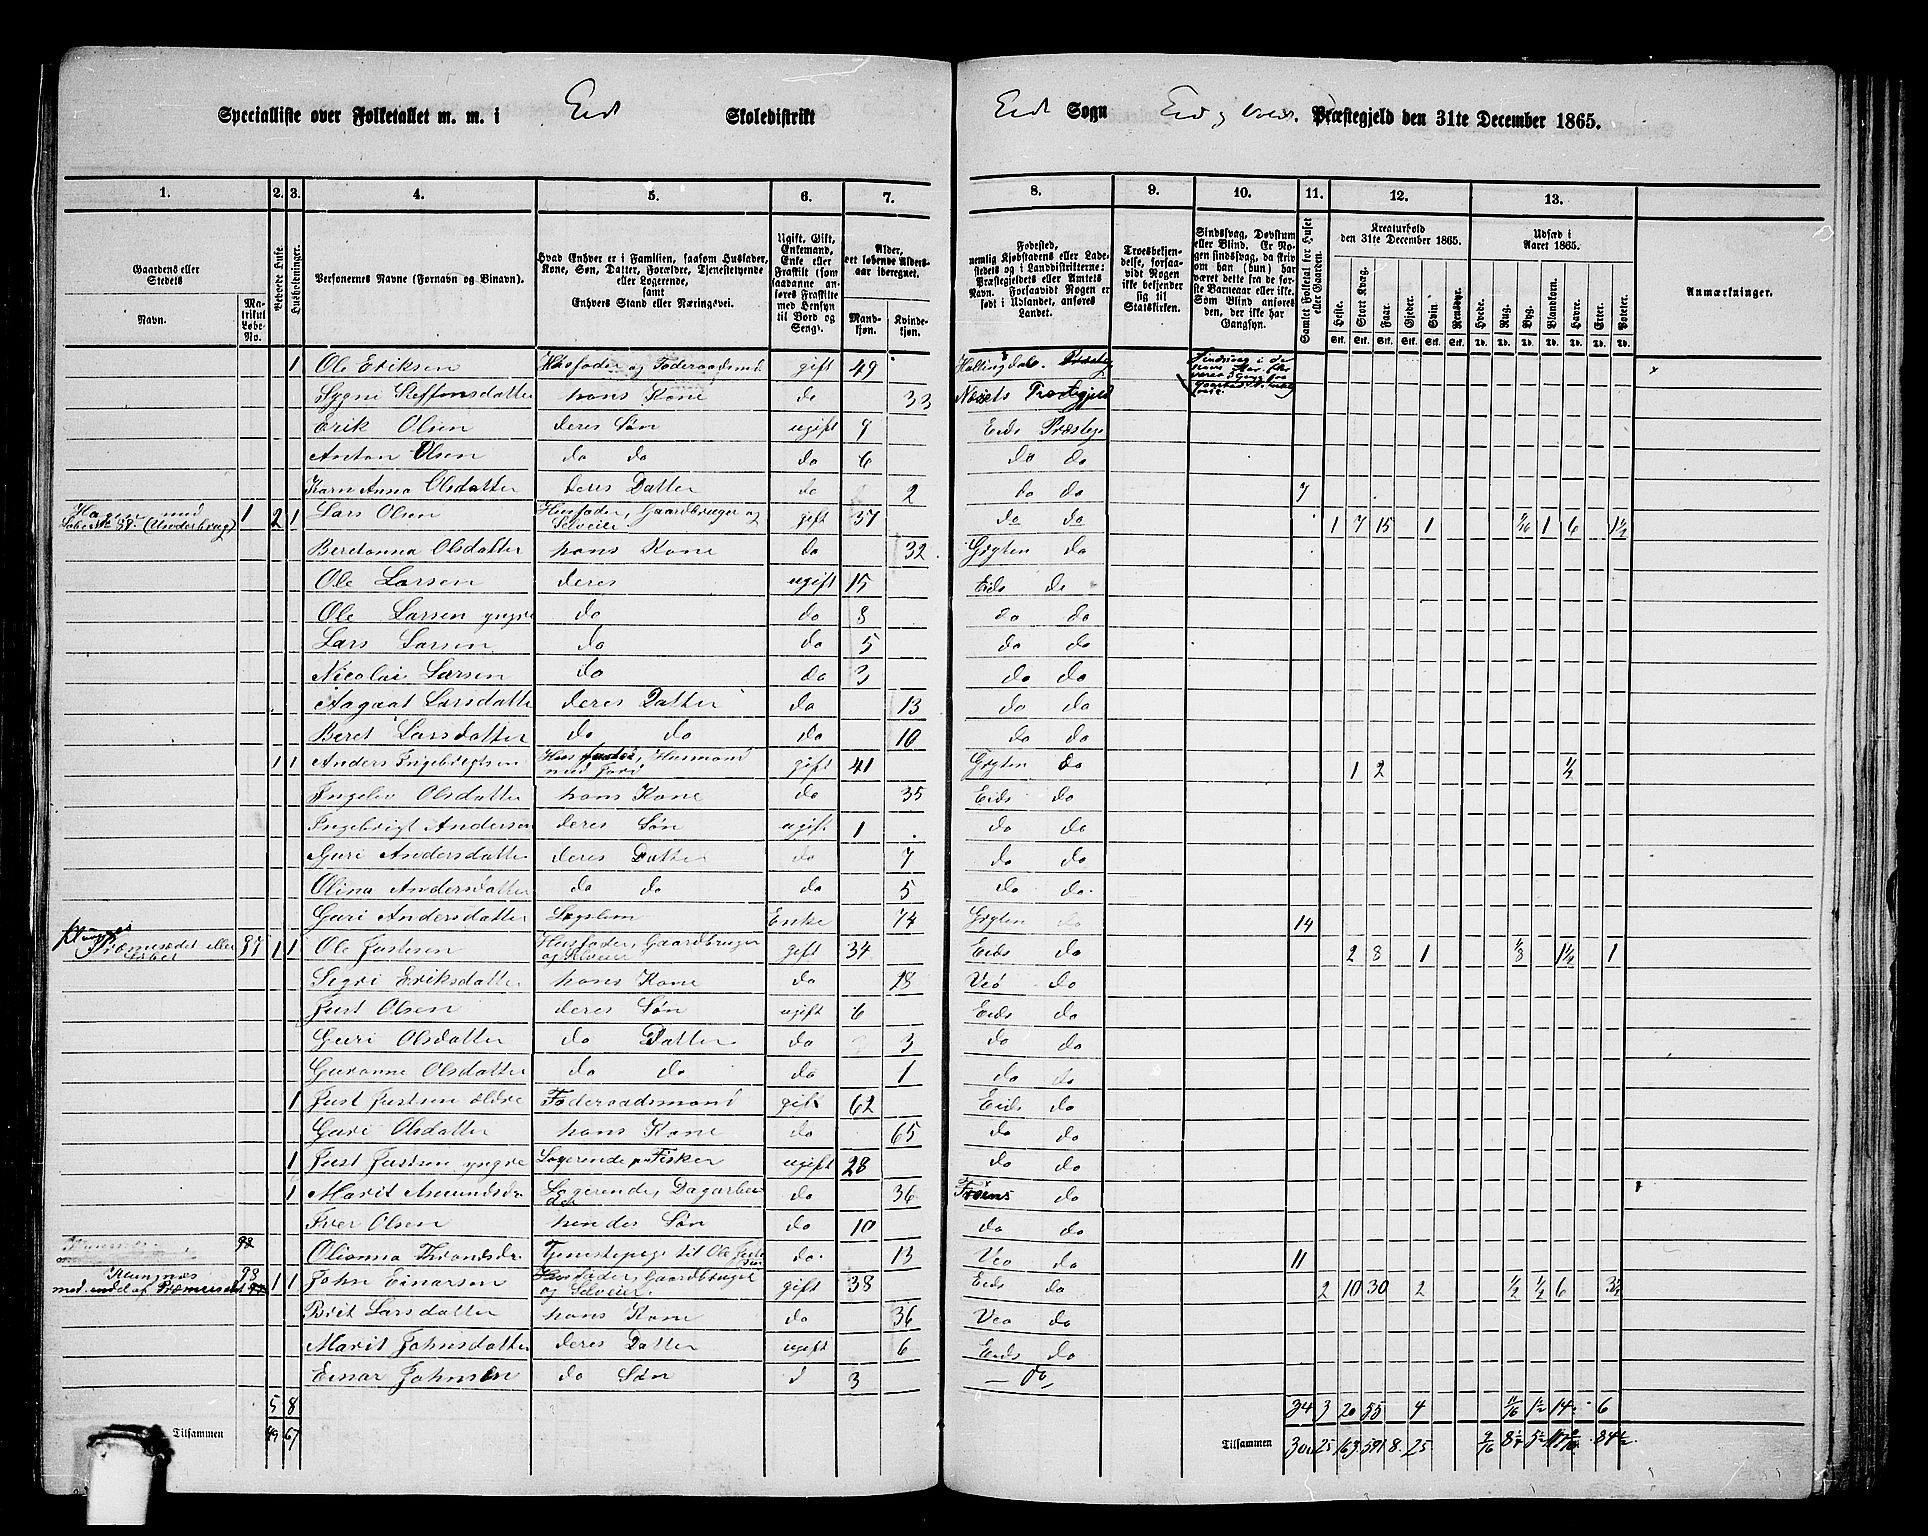 Specialliste over Folketallet m. m. i Eid Skoledistrikt Eids Sogn Eid og Præstegjeld den 31te December 1865.
1. 2. 3. 4. 5. 6. 7. 8. 9. 10. 11. 12. 13.
Gaardens eller Stedets Navn.
Matrikul Løbe-No.
Beboede Huse.
Husholdninger.
Personernes Navne (Fornavn og Binavn).
Hvad Enhver er i Familien, saasom Husfader, Kone, Søn, Datter, Forældre, Tjenestetyende eller Logerende, samt Enhvers Stand eller Næringsvei.
Ugift, Gift, Enkemand, Enke eller Fraskilt (som saadanne anføres Fraskilte med Hensyn til Bord og Seng).
Alder, det løbende Aldersaar iberegnet.
Mandkjøn. Kvindekjøn.
Fødested, nemlig Kjøbstadens eller Ladestedets og i Landdistrikterne: Præstegjeldets eller Amtets Navn. Forsaavidt Nogen er født i Udlandet, anføres Landet.
Troesbekjendelse, forsaavidt Nogen ikke bekjender sig til Statskirken.
Sindssvag, Døvstum eller Blind. Er Nogen sindssvag, da skriv om han (hun) har været dette fra de første Barneaar eller ikke. Som Blind anføres den, der ikke har Gangsyn.
Samlet Folketal for Huset eller Gaarden.
Kreaturhold den 31te December 1865.
Heste. Stort Kvæg. Faar. Gjeder. Svin. Rensdyr.
Udsæd i Aaret 1865.
Hvede. Rug. Byg. Blandkorn. Havre. Erter. Poteter.
Anmærkninger.
1 Ole Eriksen Husfader og Føderaadsmand gift 49 Hallingdal
Sygni Steffensdatter hans Kone do 33 Nesets Præstegjeld
Erik Olsen deres Søn ugift 9 Eids Præstegj
Anton Olsen do do do 6 do do
Karn Anna Olsdatter deres Datter do 2 do do 7
Hagen med (Underbrug) 1 2 1 Lars Olsen Husfader, Gaardbruger og Selveier gift 37 do do 1 7 15 1 1 6 1½
Beretanna Olsdatter hans Kone do 32 Grytten do
Ole Larsen deres ugift 15 Eids do
Ole Larsen yngre do do 8 do do
Lars Larsen do do 5 do do
Nicolai Larsen do do 3 do do
Aagaat Larsdatter deres Datter do 13 do do
Beret Larsdatter do do do 10 do do
1 1 Anders Ingebrigtsen Husfader, Husmand med Jord gift 41 Grytten do 1 2 ½
Ingeler Olsdatter hans Kone do 35 Eids do
Ingebrigt Andersen deres Søn ugift 1 do do
Guri Andersdatter deres Datter do 7 do do
Olina Andersdatter do do do 5 do do
Guri Andersdatter Lægslem Enke 74 Grytten do 14
97 1 1 Ole Justsen Husfader, Gaardbruger og Selveier gift 34 Eids do 2 8 1 ⅛ 1½ 1
Sigri Eriksdatter hans Kone do 28 Veø do
Just Olsen deres Søn ugift 6 Eids do
Guri Olsdatter do Datter do 3 do do
Guranne Olsdatter do do do 1 do do
1 Just Justsen ældre Føderaadsmand gift 62 Eids do
Guri Olsdatter hans Kone do 65 do do
1 Just Justsen yngre Logerende Fisker ugift 28 do do
1 Marit Amundsda Logerende, Dagarbeider do 36 do
Iver Olsen hendes Søn do 10 do do
98 Olianna Tjenestepige til Ole Justsen do 13 Veø do 11
Klungnæs med endel af 98 1 1 John Einarsen Husfader, Gaardbruger og Selveier gift 38 Eids do 2 10 30 2 ½ ½ 6 3½
Brit Larsdatter hans Kone do 36 Veø do
Marit Johnsdatter deres Datter ugift 6 Eids do
Einar Johnsen do Søn d 3 do
5 8 34 3 20 55 4 1½ 14 6
Tilsammen 49 67 Tilsammen 25 8 25